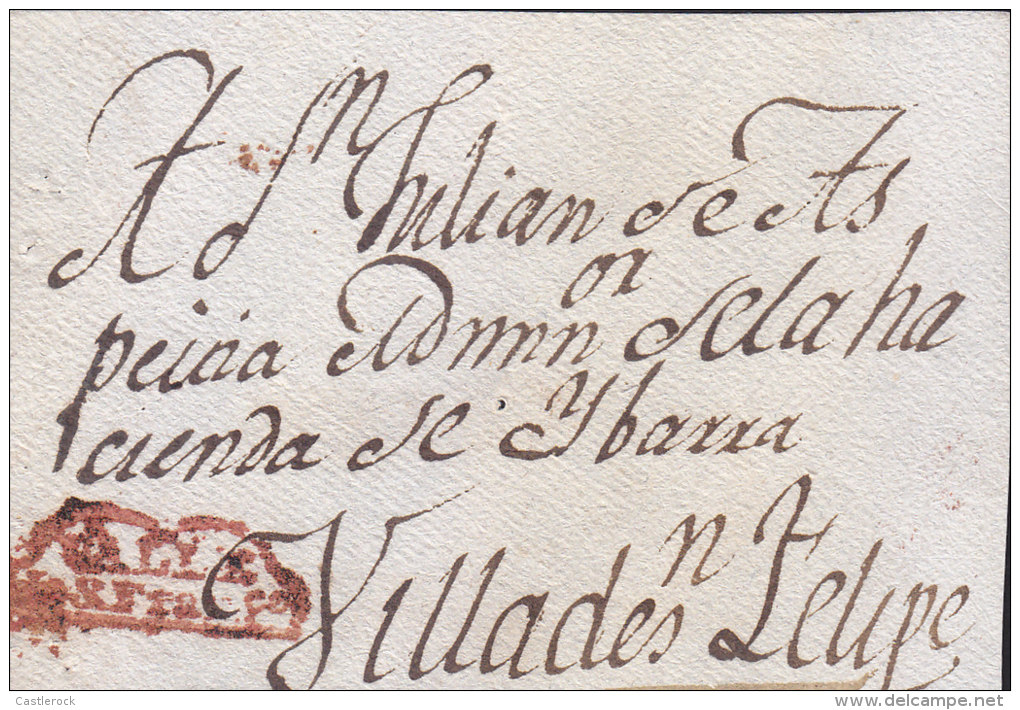 A Dn Julian de As
peitia Admnor de la ha
cienda de Ybarra
Villa de Sn Felipe
VALLE
Franco
Castlerock
delcampe.net